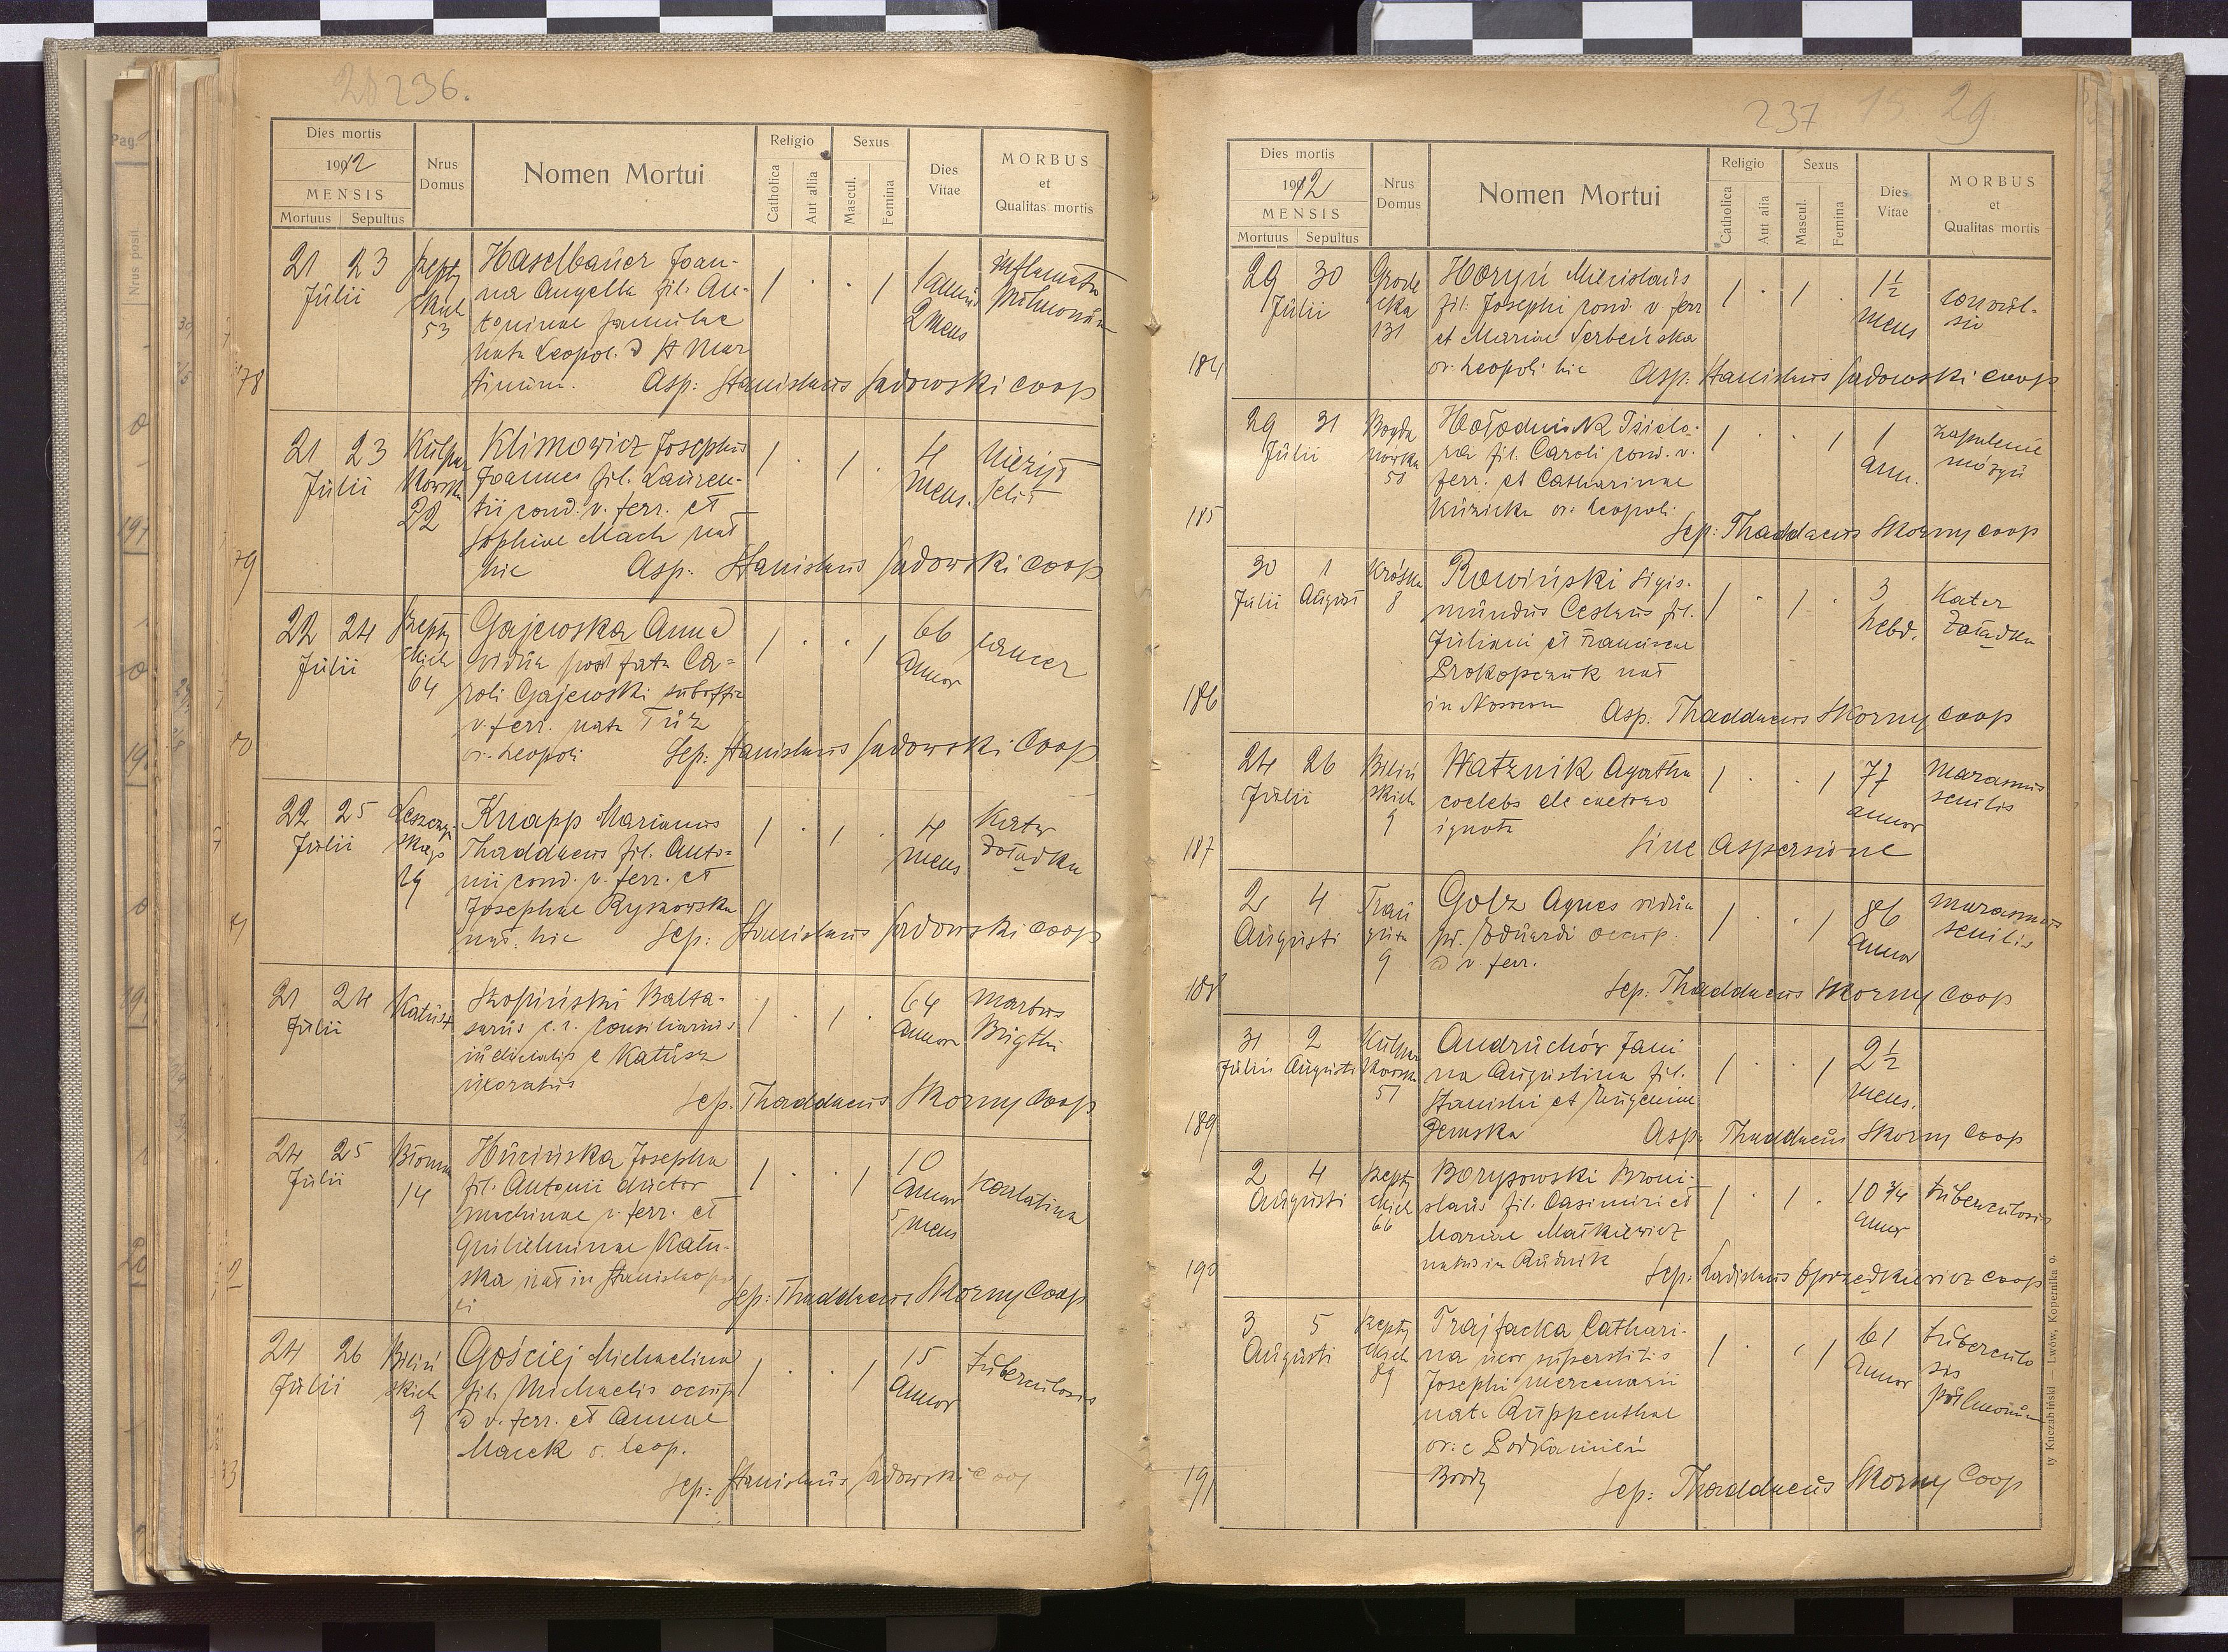 28 236.
Dies mortis
1912
MENSIS
Mortuus Sepultus
Nrus Domus
Nomen Mortui
Religio
Catholica
Aut allia
Sexus
Mascul.
Femina
Dies Vitae
MORBUS
et
Qualitas mortis
21 23 Szepty Haselbauer Joan-
Julii ckich na Angella fil. An- 1 1 1 2 mens
53 toninae famulae
nata Leopol. St Mar
78 tinum. Asp: Stanislaus Sadowski coop
21 23 Klimowicz Josephus 1 1 4
Julii Joannes fil. Lauren- mens.
22 tii cond. v. ferr. et
Sophiae Mach nat
79 hic Asp. Stanislaus Sadowski coop
22 24 Szepty Gajewska Anna 1 1 66 cancer
Julii ckich vidua post fata Ca- annor
64 roli Gajewski suboffic
v. ferr. nata Tuz
or. Leopoli Sep: Stanislaus Sadowski Coop
22 25 Knapp Marianus 1 1 4 Katar
Julii Thaddaeus fil. Anto- mens żołądka
29 nii cond. v. ferr. et
Josephae Ryszkowska
nat. hic Sep: Stanislaus Sadowski coop
21 24 Skopiński Balta- 1 1 64 morbus
Julii sarius c. r. consiliarius annor Brigthi
e Katusz
uxoratus
Sep. Thaddaeus Skorny Coop
24 25 Hucińska Josepha 1 1 10
Julii fil. Antonii ductor annor scarlatina
14 machinae v. ferr. et 5 mens
Guilielminae
ska nat in Stanislaopo
li Sep: Thaddaeus Skorny Coop
24 26 Biliń Gościej Michaelina 1 1 15 tuberculosis
Julii skich fil. Michaelis occup annor
9 a v. ferr. et Annae
Marek o. Leop.
Sep: Stanislaus Sadowski coop
237 13 29
Dies mortis
1912
MENSIS
Mortuus Sepultus
Nrus Domus
Nomen Mortui
Religio
Catholica
Aut alia
Sexus
Mascul.
Femina
Dies Vitae
MORBUS
et
Qualitas mortis
29 30 Grode Horyń Miecislaus 1 1 1½ convul-
Julii cka fil. Josephi cond. v. ferr mens sio
131 et Mariae Serbeńska
184 or. Leopoli hic Asp: Stanislaus Sadowski coop
29 31 Bogda Hołodniuk Isido- 1 1 1 zapalenie
Julii nówka ra fil. Caroli cond. v. ann. mózgu
58 ferr. et Catharinae
185 or: Leopoli.
Sep: Thaddaeus Skorny coop
30 1 Krótka Rawiński Sigis- 1 1 3 Katar
Julii August 8 mundus Ceslaus fil. hebd. żołądka
Juliani et Franciscae
Prokopczuk nat
186 in
Asp: Thaddaeus Skorny coop
24 26 Biliń Watznik Agatha 1 1 77 marasmus
Julii skich coelebs de caetero annor senilis
9 ignota
187 Sine Aspersione
2 4 Trau Golz Agnes vidua 1 1 86 marasmus
Augusti gutta p. Eduardi occup. annor senilis
9 a v. ferr.
188 Sep: Thaddaeus Skorny Coop
31 2 Andruchów Jani 1 1 2½
Julii Augusti na Augustina fil. mens.
51 Stanislai et Eugeniae
189 Asp: Thaddaeus Skorny Coop
2 4 Szepty Borysowski Broni- 1 1 10 ¾ tuberculosis
Augusti ckich slaus fil. Casimiri et annor
66 Mariae Maśkiewicz
natus in Rudnik
190 Sep: Ladislaus coop
3 5 Szepty Trajfacka Cathari- 1 1 61 tuberculo
Augusti ckich na uxor superstitis annor sis
89 Josephi mercenarii pulmonum
nata Ruppenthal
or: e Podkamień
191 Brody Sep: Thaddaeus Skorny Coop
ty Kuczabiński — Lwów, Kopernika 9.
Pag.
Nrus posit.